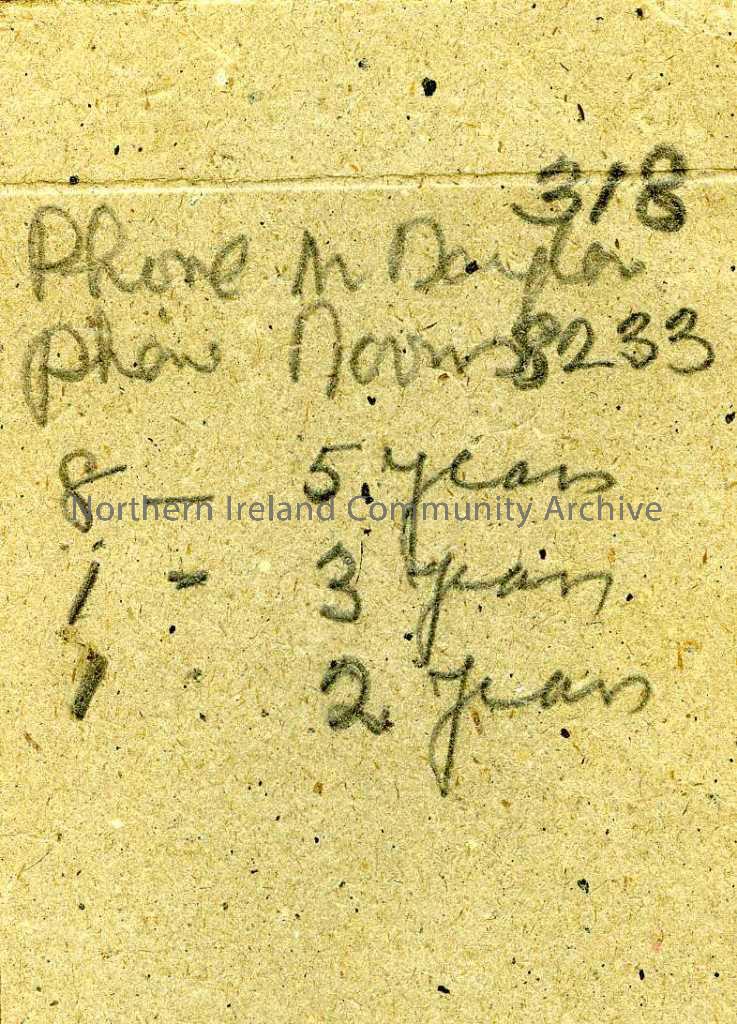 318
Phone
Phone 8233
8 — 5 years
Northern Ireland Community Archive
1 - 3 years
1 - 2 years